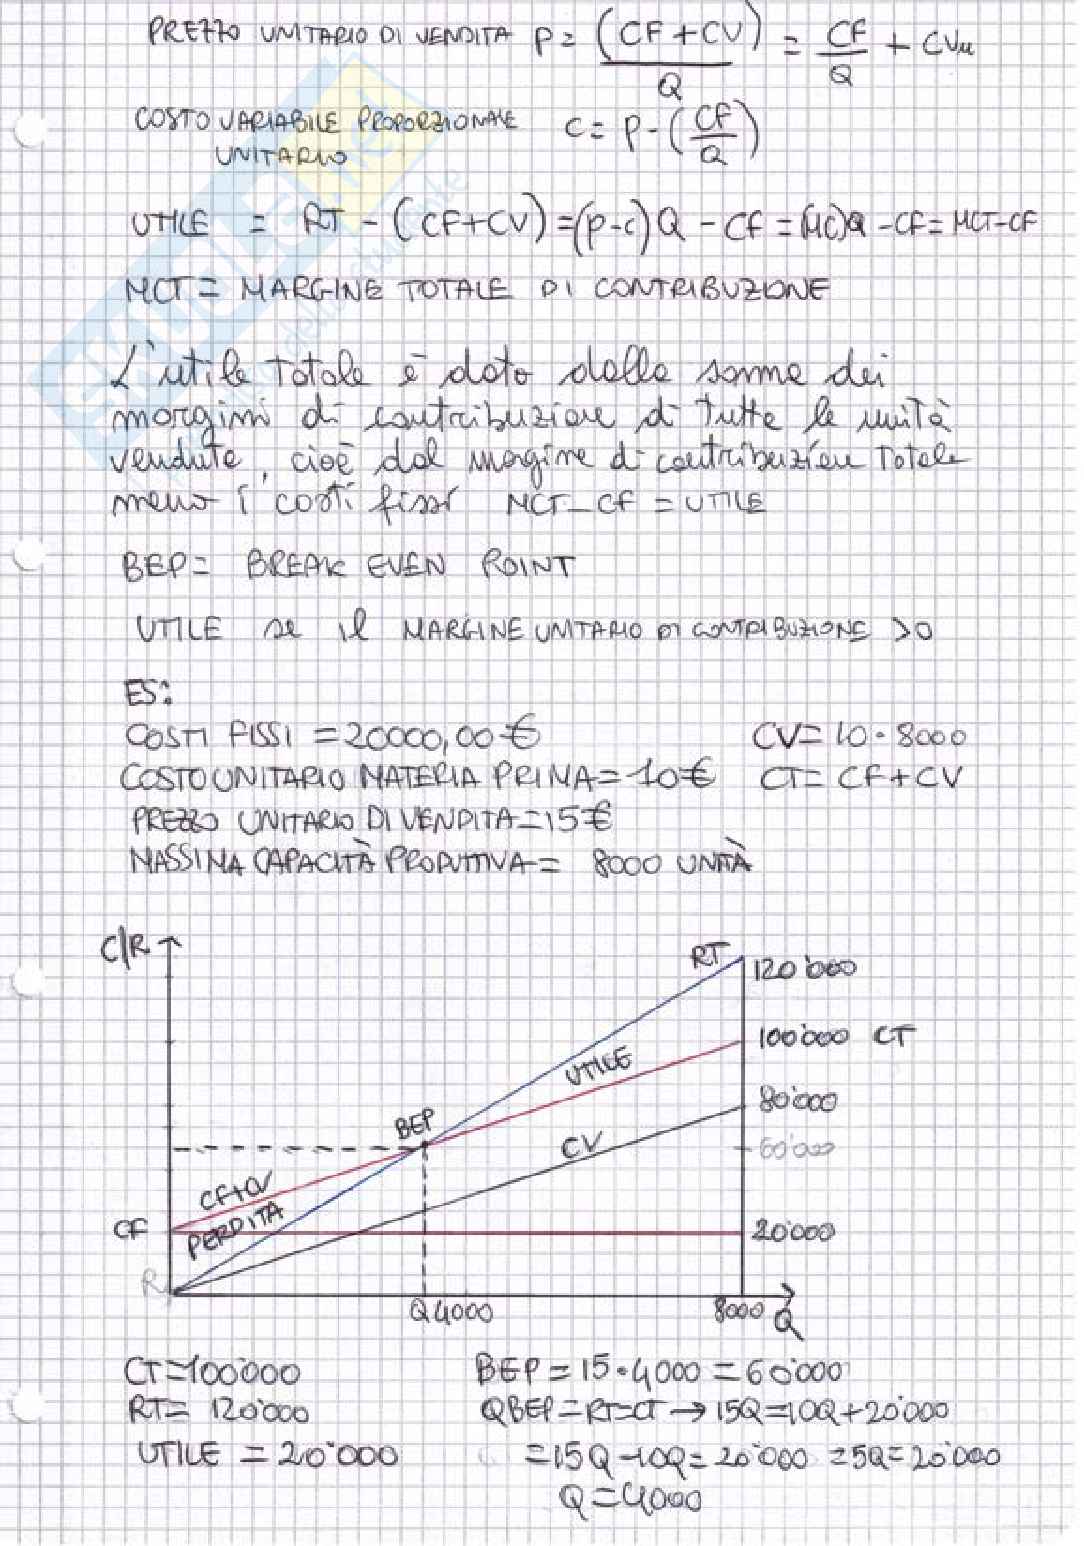 PREZZO UNITARIO DI VENDITA P = (CF+CV)/Q = CF/Q + CVu
COSTO VARIABILE PROPORZIONALE C = P - (CF/Q)
UNITARIO
UTILE = RT - (CF+CV) = (p-c)Q - CF = (MC)Q - CF = MCT-CF
MCT = MARGINE TOTALE DI CONTRIBUZIONE
L'utile totale è dato dalla somma dei
margini di contribuzione di tutte le unità
vendute, cioè dal margine di contribuzione totale
meno i costi fissi MCT-CF = UTILE
BEP = BREAK EVEN POINT
UTILE se il MARGINE UNITARIO DI CONTRIBUZIONE >0
ES:
COSTI FISSI = 20000,00€ CV = 10·8000
COSTO UNITARIO MATERIA PRIMA = 10€ CT = CF+CV
PREZZO UNITARIO DI VENDITA = 15€
MASSIMA CAPACITÀ PRODUTTIVA = 8000 UNITÀ
C/R
RT
120'000
100'000 CT
UTILE
80'000
BEP
CV
60'000
CF+CV
CF
PERDITA
20'000
R
Q 4000
8000 Q
CT=100'000 BEP = 15·4000 = 60'000
RT = 120'000 QBEP = RT=CT → 15Q=10Q+20'000
UTILE = 20'000 = 15Q-10Q = 20'000 = 5Q = 20'000
Q = 4000
SKUOLA.net